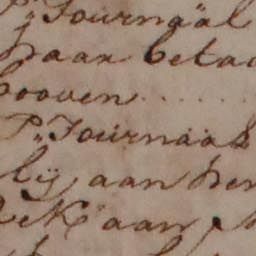 P.r Journaal
haar betaa
booven ......
P.r Journaal
lij aan hem
aan